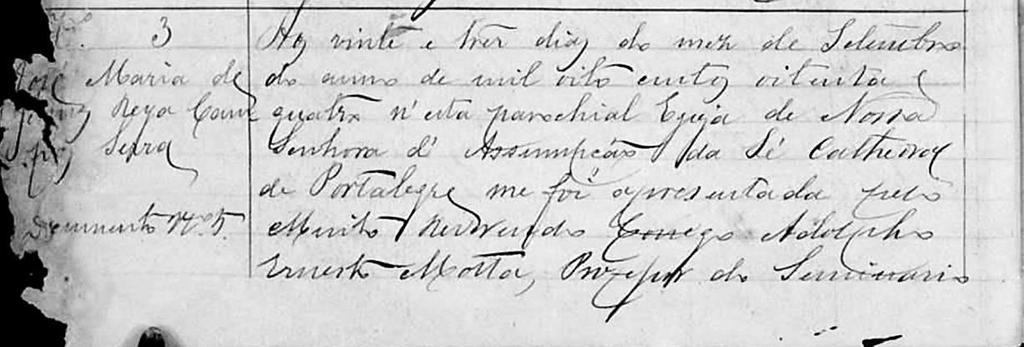 Nº. 3
José Maria de
Reya Cam
pos Serra
Documento Nº 5.
Aos vinte e tres dias do mez de Setembro
do anno de mil oito centos oitenta e
quatro n'esta parochial Egreja de Nossa
Senhora d'Assumpção da Sé Cathedral
de Portalegre me foi apresentada pelo
Muito Reverendo Conego Adolpho
Ernesto Motta, Professor do Seminario